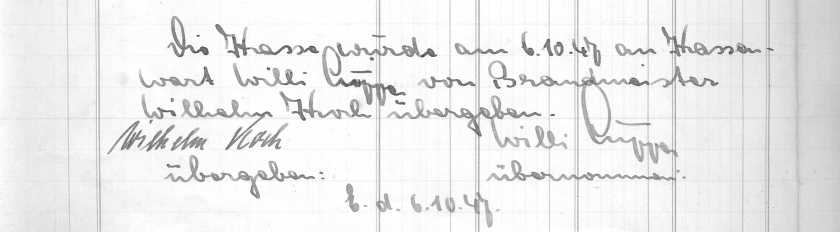 Die Kasse wurde am 6.10.47 an Kassen-
wart Willi Küppen von Brandmeister
Wilhelm Koch übergeben.
Wilhelm Koch Willi Küppen
übergeben: übernommen:
E. d. 6.10.47.